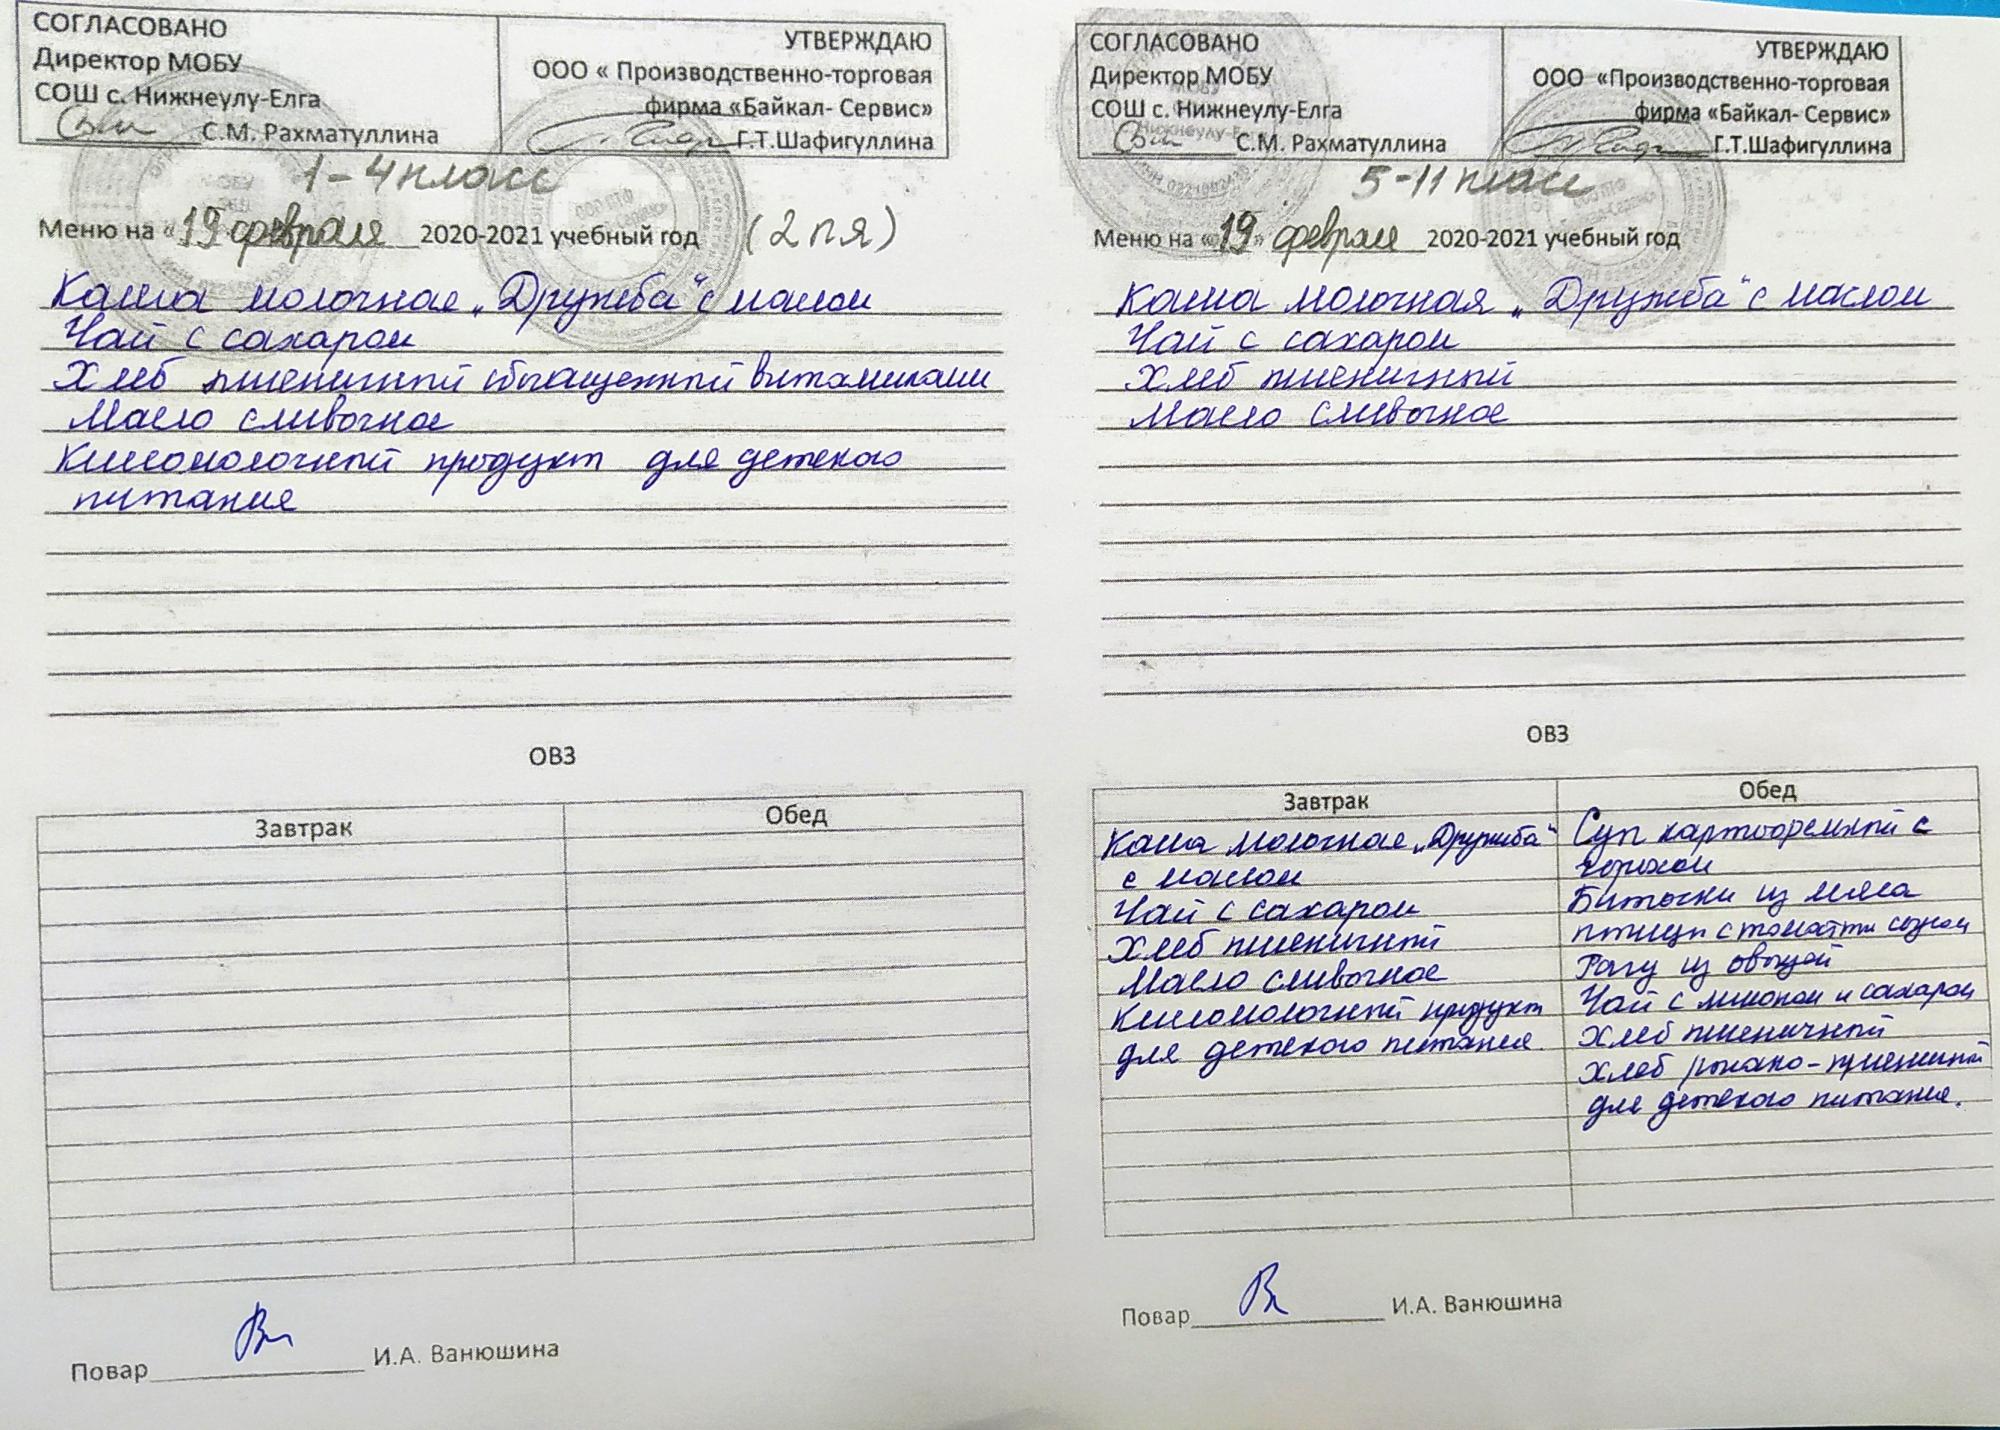 СОГЛАСОВАНО
Директор МОБУ
СОШ с. Нижнеулу-Елга
С.М. Рахматуллина
УТВЕРЖДАЮ
ООО « Производственно-торговая
фирма «Байкал- Сервис»
Г.Т.Шафигуллина
1-4 класс
Меню на «19 февраля 2020-2021 учебный год (2 п я)
Каша молочная „Дружба“ с маслом
Чай с сахаром
Хлеб пшеничный обогащенный витаминами
Масло сливочное
Кисломолочный продукт для детского
питания
ОВЗ
Завтрак
Обед
Повар И.А. Ванюшина
СОГЛАСОВАНО
Директор МОБУ
СОШ с. Нижнеулу-Елга
С.М. Рахматуллина
УТВЕРЖДАЮ
ООО «Производственно-торговая
фирма «Байкал- Сервис»
Г.Т.Шафигуллина
5-11 класс
Меню на «19» февраля 2020-2021 учебный год
Каша молочная „Дружба“ с маслом
Чай с сахаром
Хлеб пшеничный
Масло сливочное
ОВЗ
Завтрак
Каша молочная „Дружба“
с маслом
Чай с сахаром
Хлеб пшеничный
Масло сливочное
Кисломолочный продукт
для детского питания.
Обед
Суп картофельный с
горохом
Биточки из мяса
птицы с томатн соусом
Рагу из овощей
Чай с лимоном и сахаром
Хлеб пшеничный
Хлеб ржано-пшеничный
для детского питания.
Повар И.А. Ванюшина